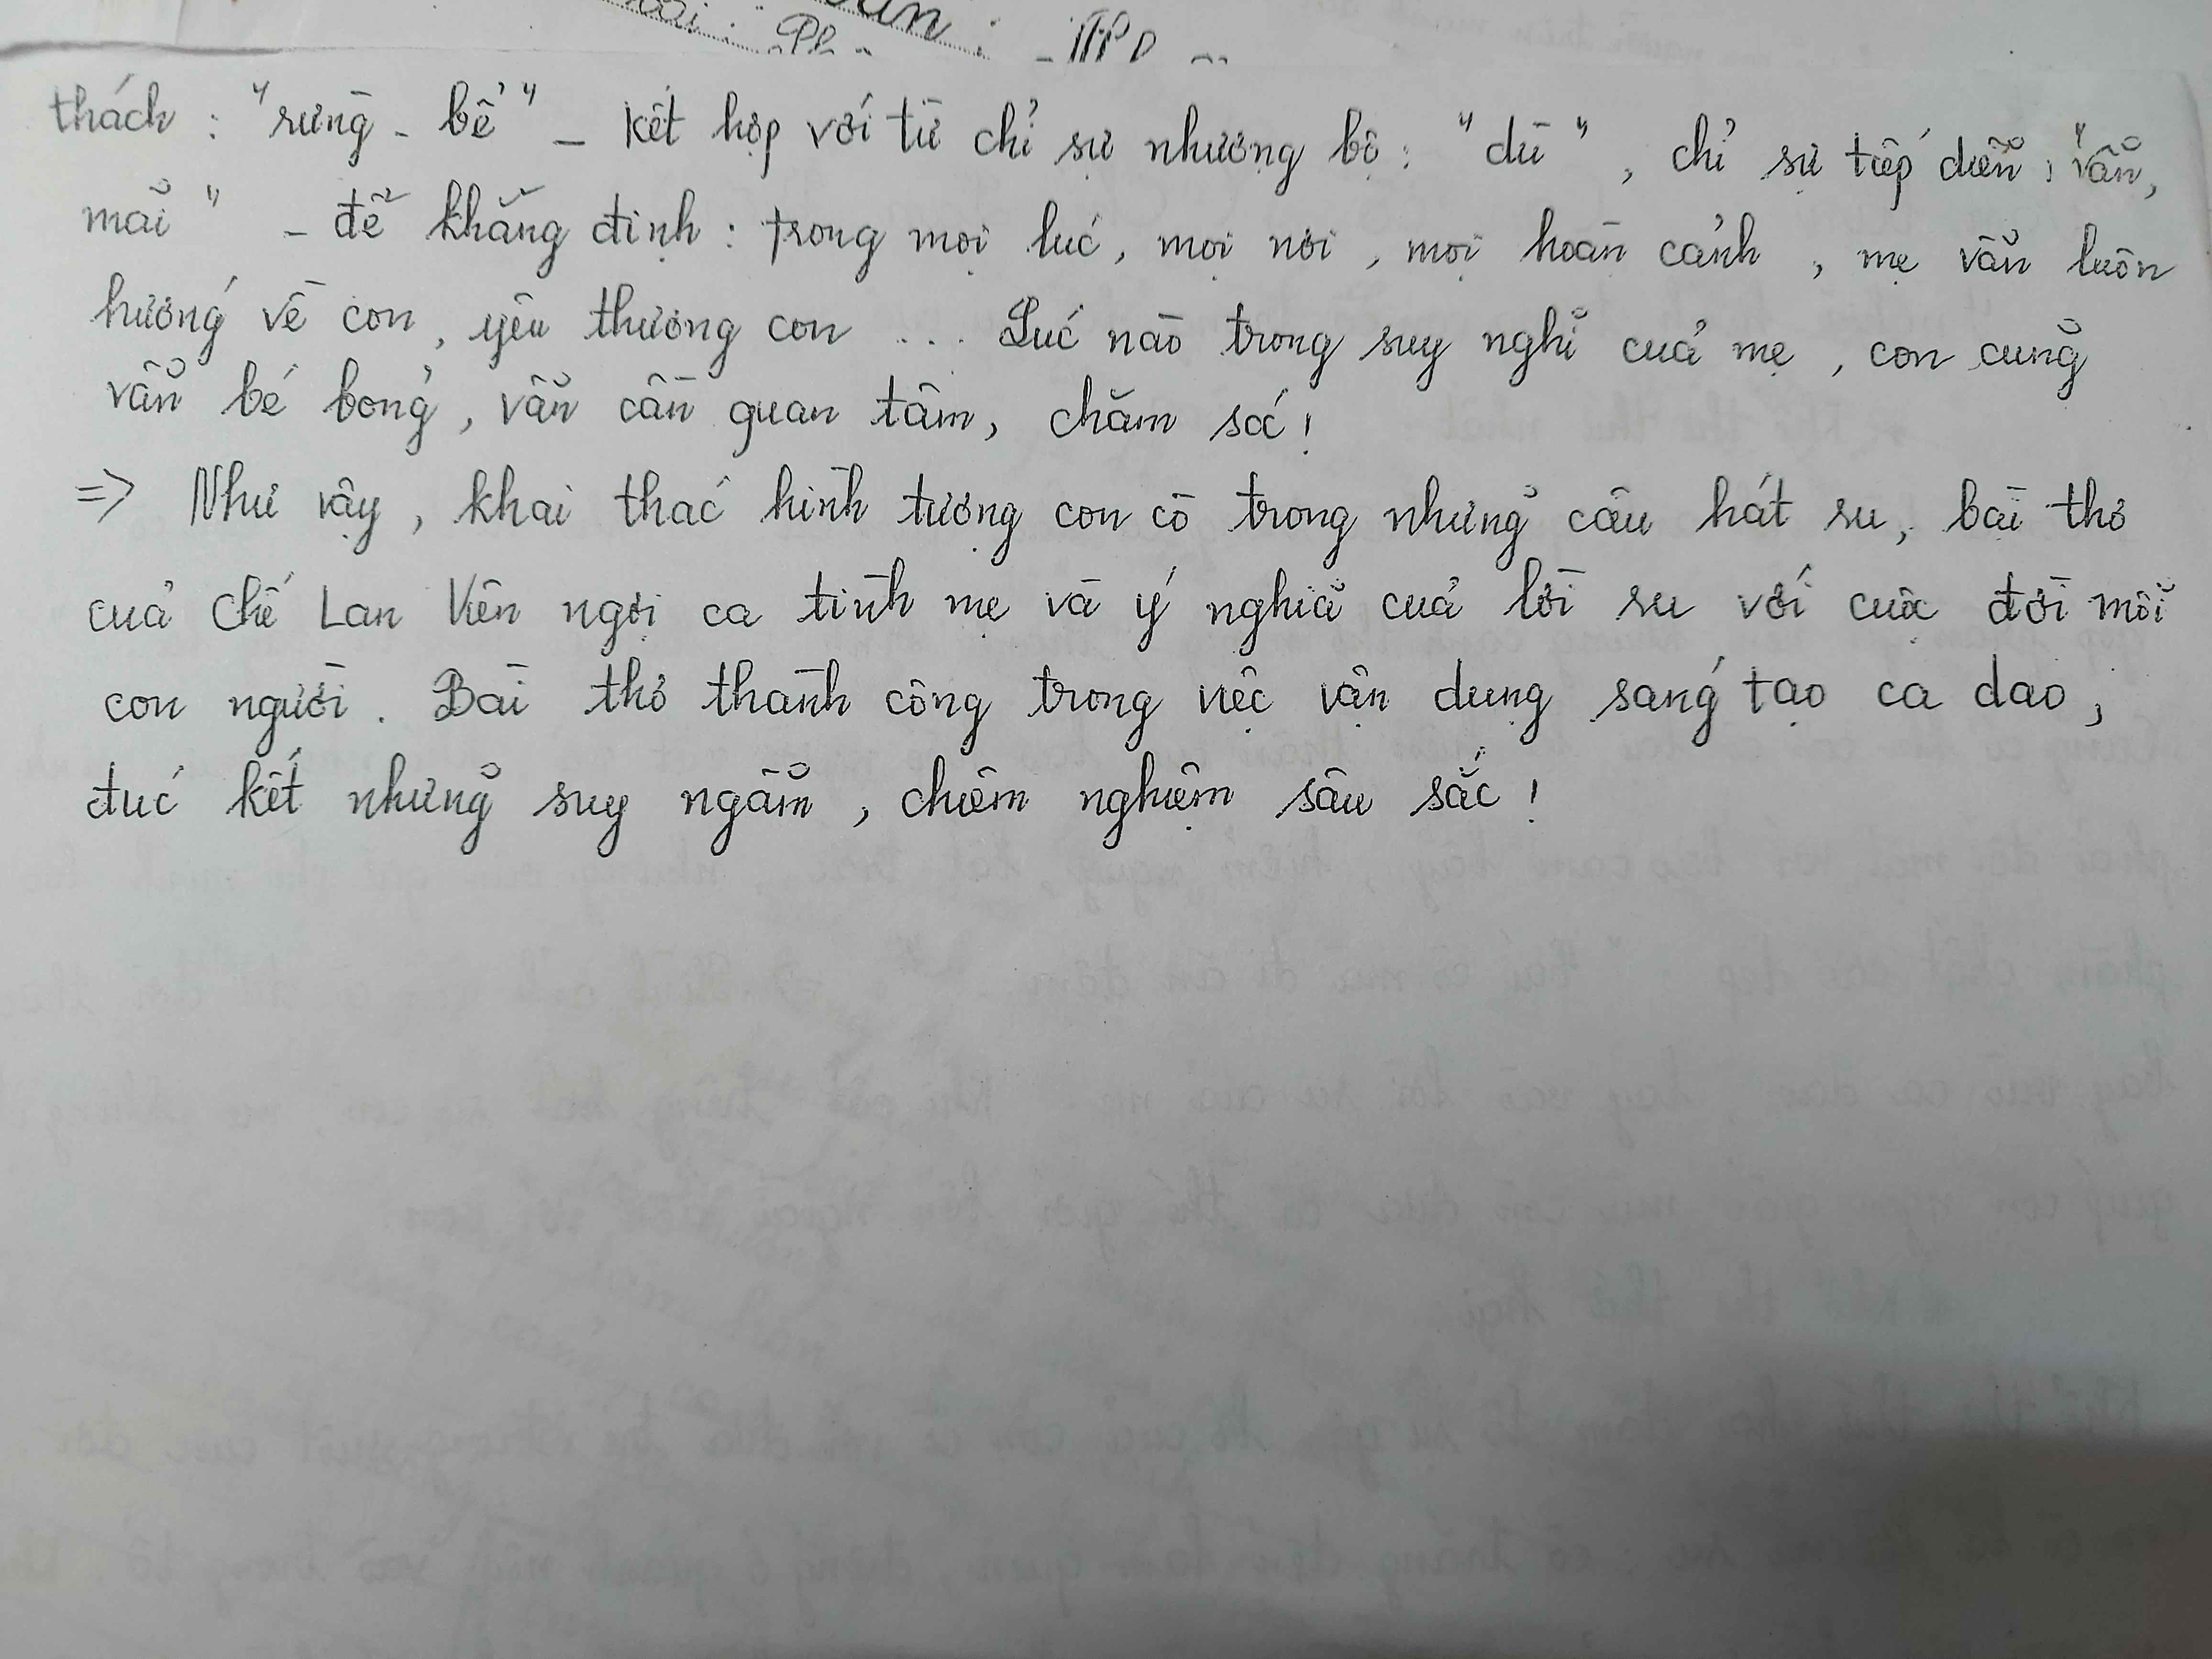 thách : "rừng - bể" - kết hợp với từ chỉ sự nhượng bộ : "dù", chỉ sự tiếp diễn : "vẫn,
mãi" - để khẳng định : trong mọi lúc, mọi nơi, mọi hoàn cảnh, mẹ vẫn luôn
hướng về con, yêu thương con ... Lúc nào trong suy nghĩ của mẹ, con cũng
vẫn bé bỏng, vẫn cần quan tâm, chăm sóc!
=> Như vậy, khai thác hình tượng con cò trong những câu hát ru, bài thơ
của Chế Lan Viên ngợi ca tình mẹ và ý nghĩa của lời ru với cuộc đời mỗi
con người. Bài thơ thành công trong việc vận dụng sáng tạo ca dao,
đúc kết những suy ngẫm, chiêm nghiệm sâu sắc!